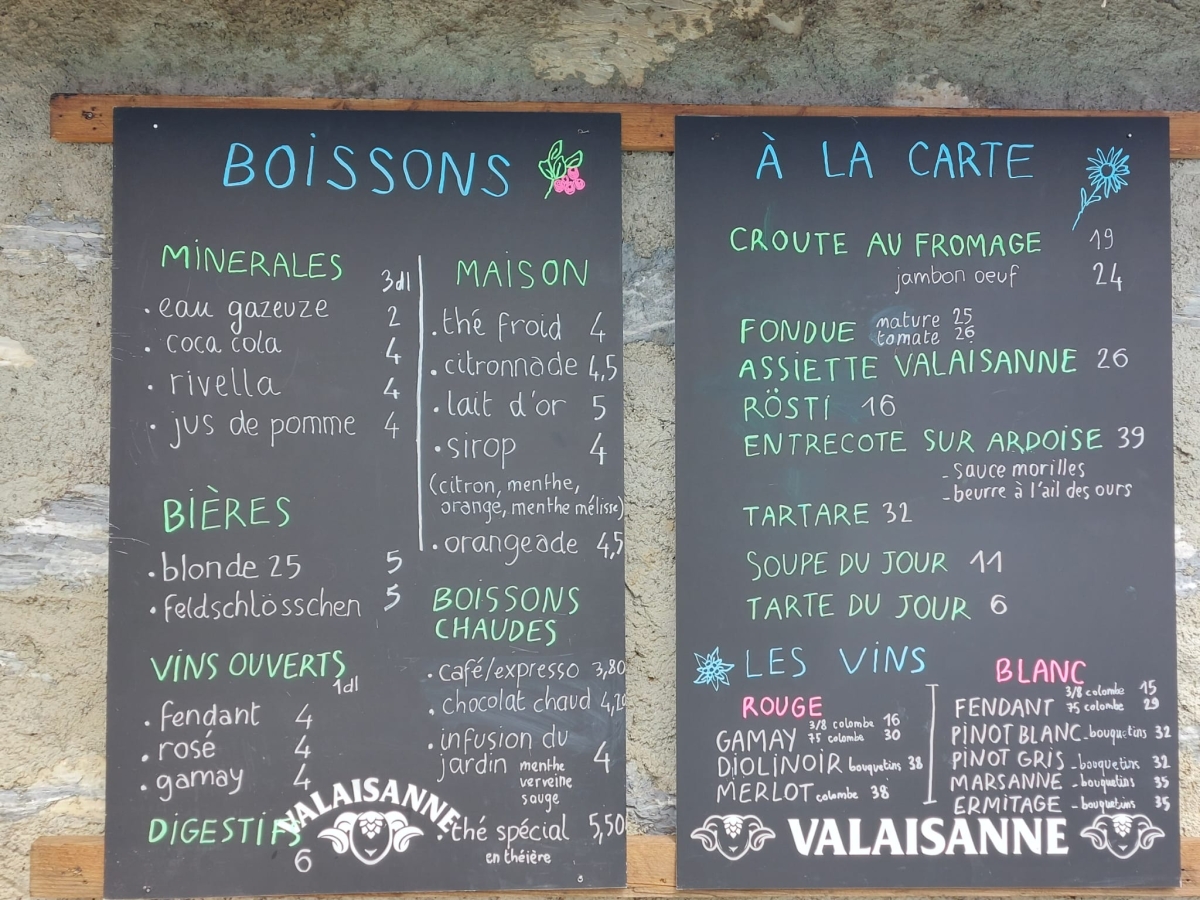 BOISSONS
MINERALES
3dl
.eau gazeuze 2
. coca cola 4
. rivella 4
. jus de pomme 4
BIÈRES
.blonde 25 5
.feldschlösschen 5
VINS OUVERTS
1dl
. fendant 4
. rosé 4
. gamay 4
DIGESTIFS
6
MAISON
.thé froid 4
.citronnade 4,5
.lait d'or 5
.sirop 4
(citron, menthe,
orange, menthe mélisse)
.orangeade 4,5
BOISSONS
CHAUDES
.café/expresso 3,80
. chocolat chaud 4,20
.infusion du
jardin menthe 4
verveine
sauge
.thé spécial 5,50
en théière
VALAISANNE
À LA CARTE
CROUTE AU FROMAGE 19
jambon oeuf 24
FONDUE nature 25
tomate 26
ASSIETTE VALAISANNE 26
RÖSTI 16
ENTRECOTE SUR ARDOISE 39
-sauce morilles
-beurre à l'ail des ours
TARTARE 32
SOUPE DU JOUR 11
TARTE DU JOUR 6
LES VINS
ROUGE
GAMAY 3/8 colombe 16
75 colombe 30
DIOLINOIR bouquetins 38
MERLOT colombe 38
BLANC
FENDANT 3/8 colombe 15
75 colombe 29
PINOT BLANC-bouquetins 32
PINOT GRIS -bouquetins 32
MARSANNE -bouquetins 35
ERMITAGE -bouquetins 35
VALAISANNE